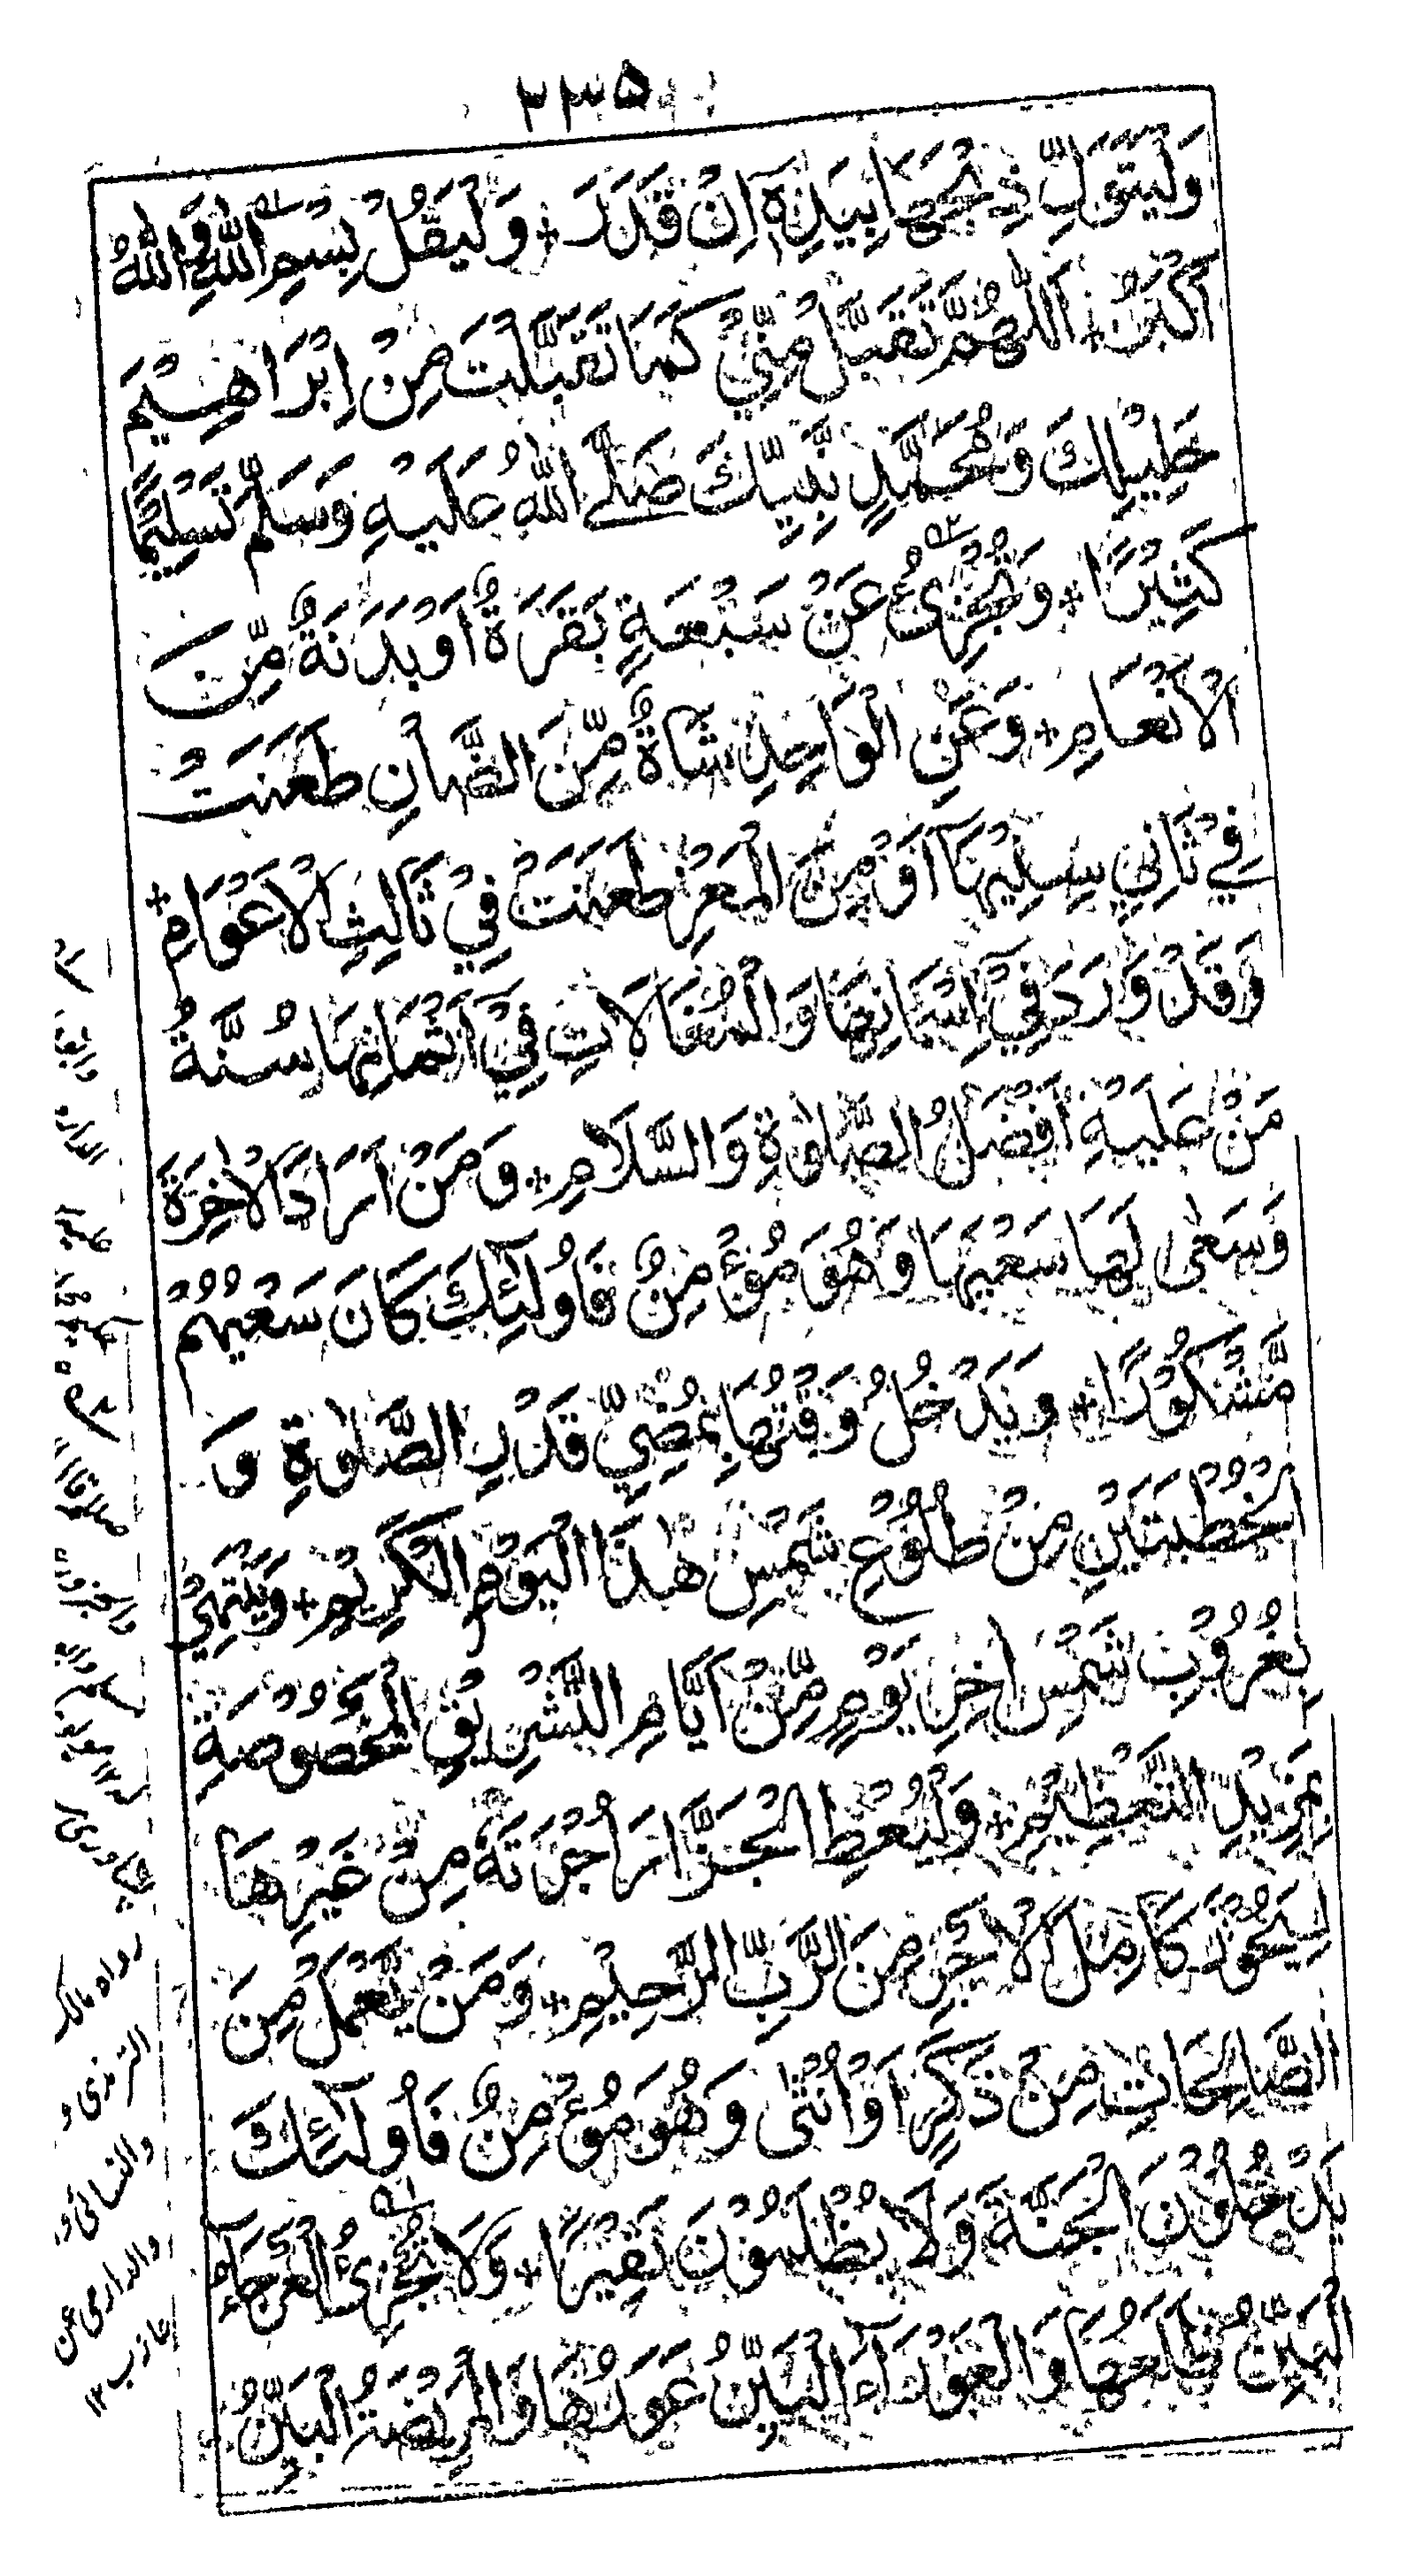 ٢٣٥
وَلْيَتَوَلَّ ذَبْحَهَا بِيَدِهٖ اِنْ قَدَرَ ؞ وَلْيَقُلْ بِسْمِ اللّٰهِ وَاللّٰهُ
اَكْبَرُ ؞ اَللّٰهُمَّ تَقَبَّلْ مِنِّيْ كَمَا تَقَبَّلْتَ مِنْ اِبْرَاهِيْمَ
خَلِيْلِكَ وَمُحَمَّدٍ نَّبِيِّكَ صَلَّے اللّٰهُ عَلَيْهِ وَسَلَّمَ تَسْلِيْمًا
كَثِيْرًا ؞ وَتُجْزِئُ عَنْ سَبْعَةٍ بَقَرَةٌ اَوْ بَدَنَةٌ مِّنَ
الْاَنْعَامِ ؞ وَعَنِ الْوَاحِدِ شَاةٌ مِّنَ الضَّأْنِ طَعَنَتْ
فِيْ ثَانِيْ سِنِيْهَا اَوْ مِنَ الْمَعْزِ طَعَنَتْ فِيْ ثَالِثِ الْاَعْوَامِ ؞
وَقَدْ وَرَدَ فِيْ اِسْمَانِهَا وَالْمُغَالَاتِ فِيْ اَثْمَانِهَا سُنَّةُ
مَنْ عَلَيْهِ اَفْضَلُ الصَّلٰوةِ وَالسَّلَامِ ؞ وَمَنْ اَرَادَ الْاٰخِرَةَ
وَسَعٰى لَهَا سَعْيَهَا وَهُوَ مُؤْمِنٌ فَاُولٰٓئِكَ كَانَ سَعْيُهُمْ
مَّشْكُوْرًا ؞ وَيَدْخُلُ وَقْتُهَا بِمُضِيِّ قَدْرِ الصَّلٰوةِ وَ
الْخُطْبَتَيْنِ مِنْ طُلُوْعِ شَمْسِ هٰذَا الْيَوْمِ الْكَرِيْمِ ؞ وَيَنْتَهِيْ
بِغُرُوْبِ شَمْسِ اٰخِرِ يَوْمٍ مِّنْ اَيَّامِ التَّشْرِيْقِ الْمَخْصُوْصَةِ
بِمَزِيْدِ التَّعْظِيْمِ ؞ وَلْيُعْطِ الْجَزَّارَ اُجْرَتَهٗ مِنْ غَيْرِهَا
لِيَحُوْزَ كَامِلَ الْاَجْرِ مِنَ الرَّبِّ الرَّحِيْمِ ؞ وَمَنْ يَّعْمَلْ مِنَ
الصَّالِحَاتِ مِنْ ذَكَرٍ اَوْ اُنْثٰى وَهُوَ مُؤْمِنٌ فَاُولٰٓئِكَ
يَدْخُلُوْنَ الْجَنَّةَ وَلَا يُظْلَمُوْنَ نَقِيْرًا ؞ وَلَا تُجْزِئُ الْعَرْجَاءُ
الْبَيِّنُ ظَلَعُهَا وَالْعَوْرَاءُ الْبَيِّنُ عَوَرُهَا وَالْمَرِيْضَةُ الْبَيِّنُ
رواه مالك
الترمذى و
والنسائى و
والدارمى عن
عازب ١٢